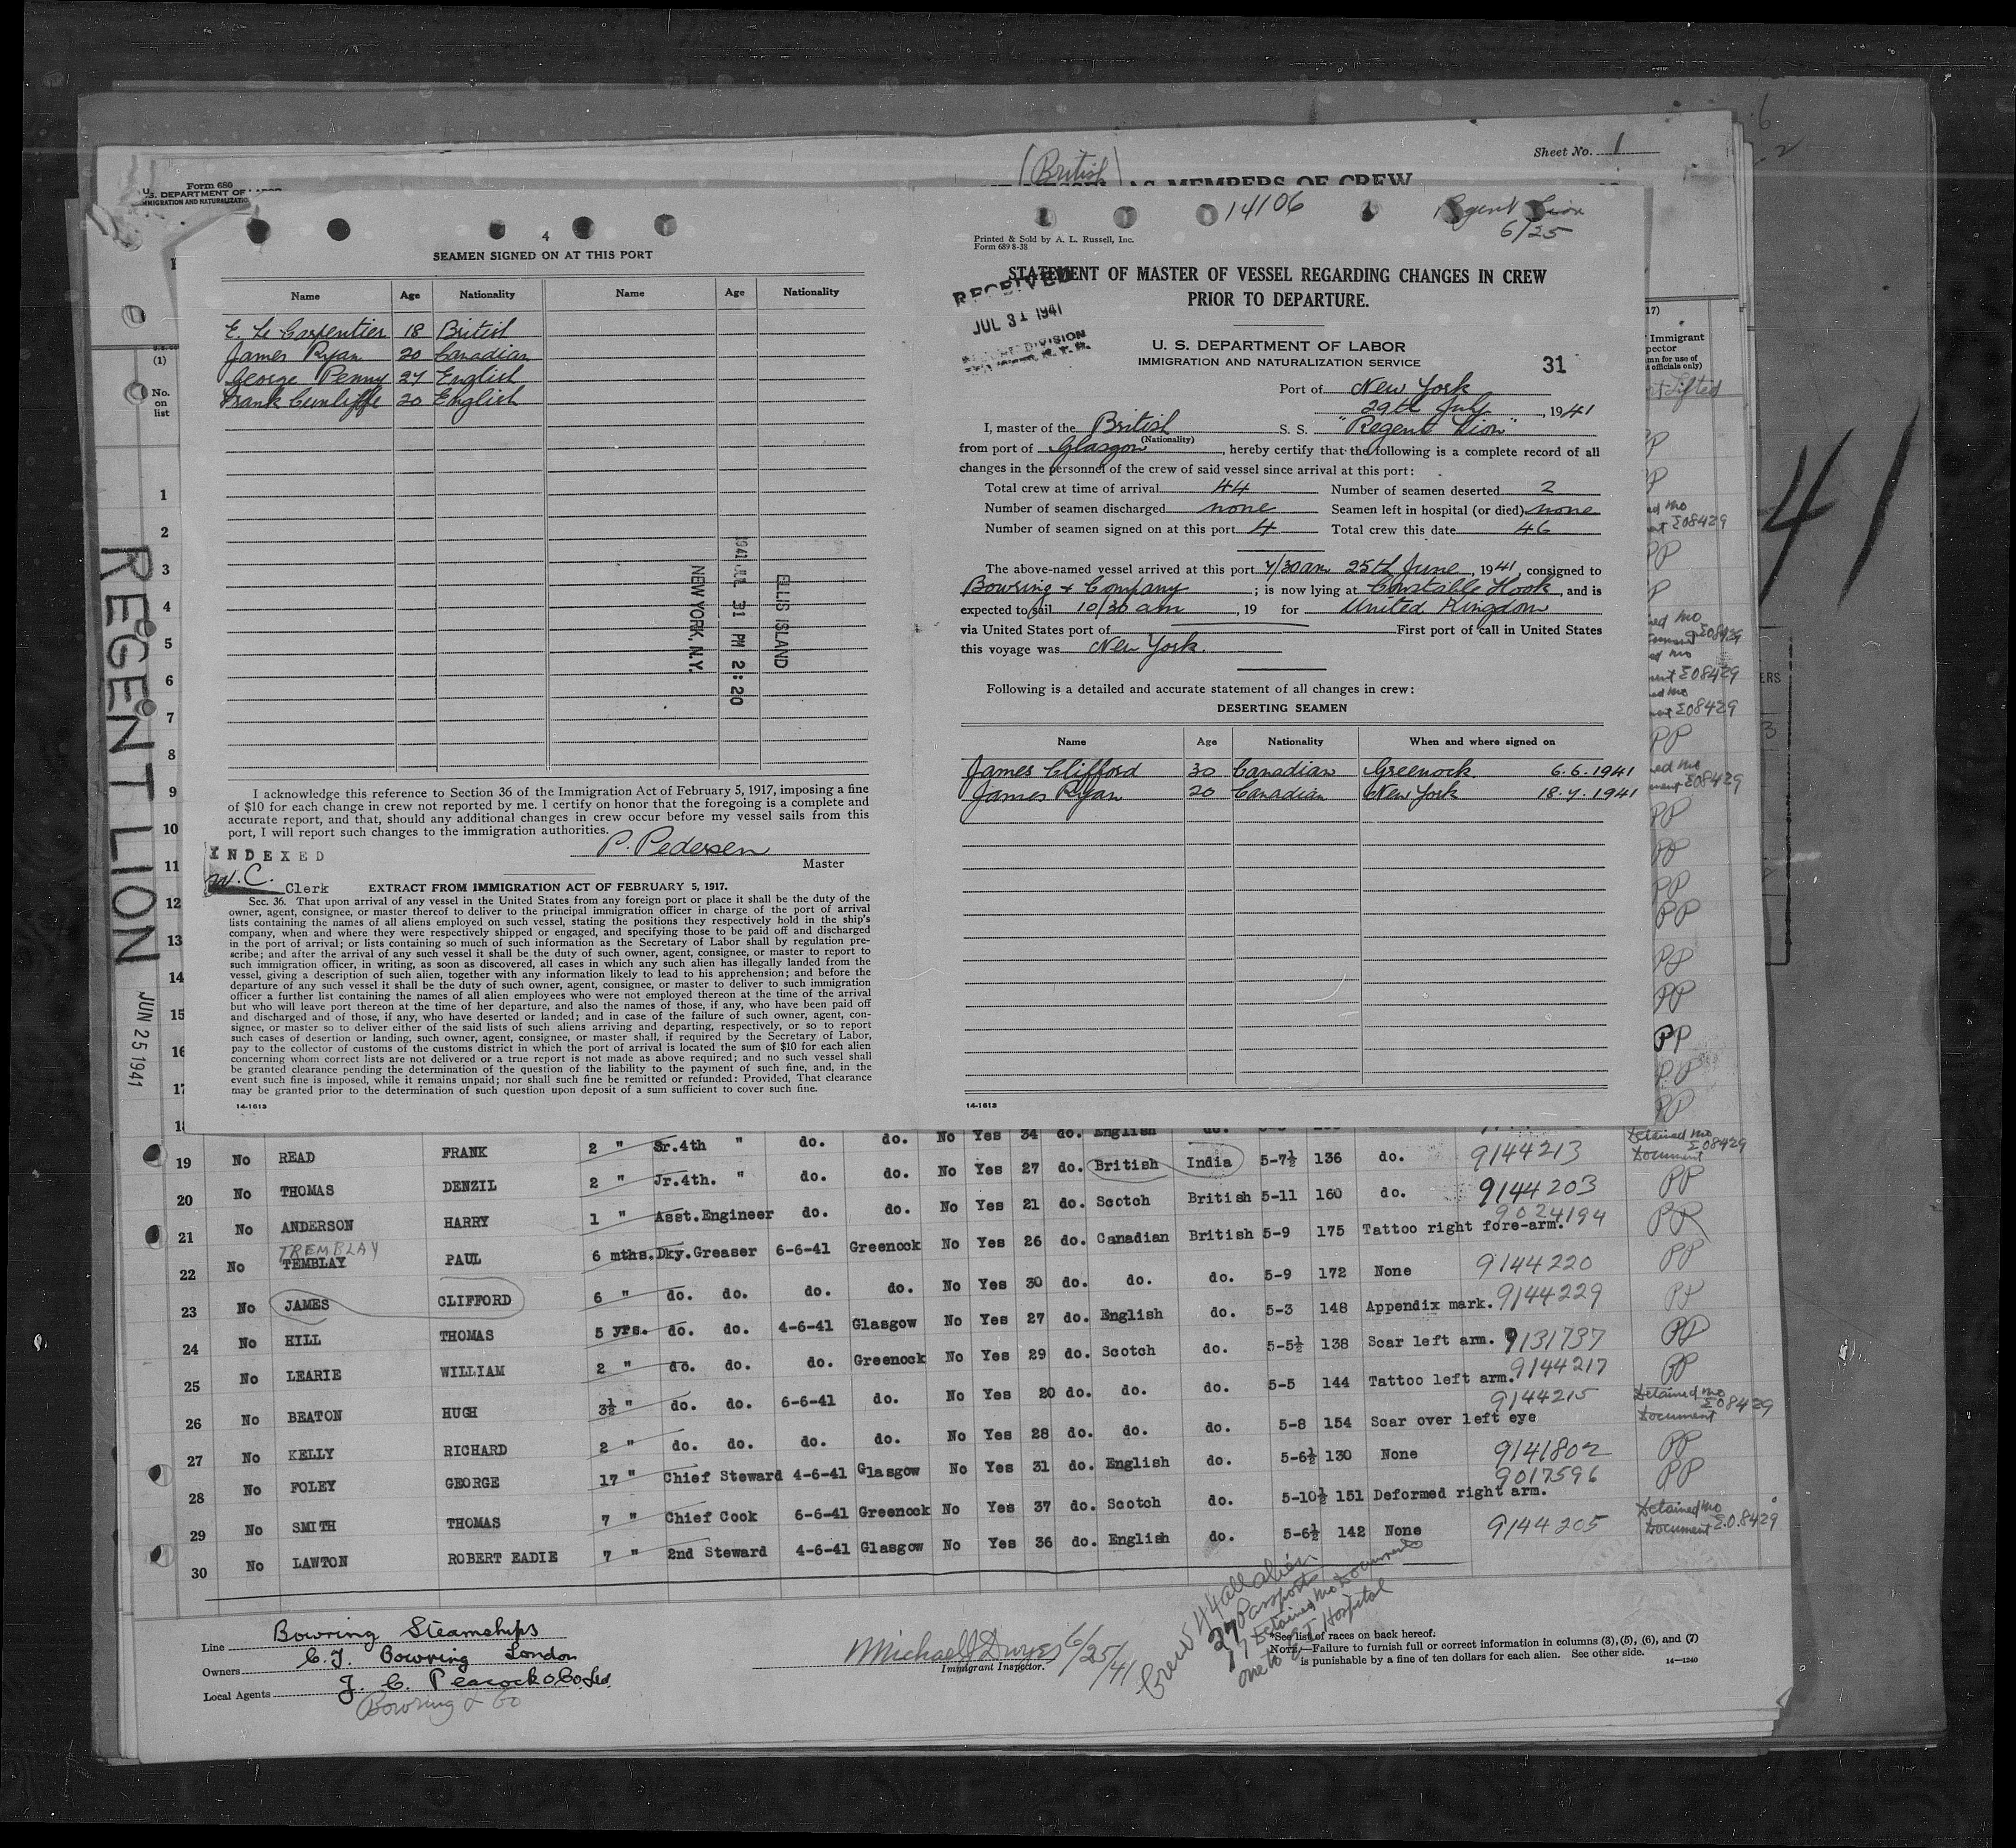 Sheet No. 1
(British)
AS MEMBERS OF CREW
Form 680
U.S. DEPARTMENT OF LABOR
IMMIGRATION AND NATURALIZATIO
4
SEAMEN SIGNED ON AT THIS PORT
Name Age Nationality Name Age Nationality
E. Le Carpentier 18 British
James Ryan 20 Canadian
George Penny 27 English
Frank Cunliffe 20 English
ELLIS ISLAND
1941 JUL 31 PM 2:20
NEW YORK, N.Y.
I acknowledge this reference to Section 36 of the Immigration Act of February 5, 1917, imposing a fine
of $10 for each change in crew not reported by me. I certify on honor that the foregoing is a complete and
accurate report, and that, should any additional changes in crew occur before my vessel sails from this
port, I will report such changes to the immigration authorities.
P. Pedersen
Master
INDEXED
W.C. Clerk
EXTRACT FROM IMMIGRATION ACT OF FEBRUARY 5, 1917.
Sec. 36. That upon arrival of any vessel in the United States from any foreign port or place it shall be the duty of the
owner, agent, consignee, or master thereof to deliver to the principal immigration officer in charge of the port of arrival
lists containing the names of all aliens employed on such vessel, stating the positions they respectively hold in the ship's
company, when and where they were respectively shipped or engaged, and specifying those to be paid off and discharged
in the port of arrival; or lists containing so much of such information as the Secretary of Labor shall by regulation pre-
scribe; and after the arrival of any such vessel it shall be the duty of such owner, agent, consignee, or master to report to
such immigration officer, in writing, as soon as discovered, all cases in which any such alien has illegally landed from the
vessel, giving a description of such alien, together with any information likely to lead to his apprehension; and before the
departure of any such vessel it shall be the duty of such owner, agent, consignee, or master to deliver to such immigration
officer a further list containing the names of all alien employees who were not employed thereon at the time of the arrival
but who will leave port thereon at the time of her departure, and also the names of those, if any, who have been paid off
and discharged and of those, if any, who have deserted or landed; and in case of the failure of such owner, agent, con-
signee, or master so to deliver either of the said lists of such aliens arriving and departing, respectively, or so to report
such cases of desertion or landing, such owner, agent, consignee, or master shall, if required by the Secretary of Labor,
pay to the collector of customs of the customs district in which the port of arrival is located the sum of $10 for each alien
concerning whom correct lists are not delivered or a true report is not made as above required; and no such vessel shall
be granted clearance pending the determination of the question of the liability to the payment of such fine, and, in the
event such fine is imposed, while it remains unpaid; nor shall such fine be remitted or refunded: Provided, That clearance
may be granted prior to the determination of such question upon deposit of a sum sufficient to cover such fine.
14-1613
14106
Regent Lion
6/25
Printed & Sold by A. L. Russell, Inc.
Form 689 8-38
STATEMENT OF MASTER OF VESSEL REGARDING CHANGES IN CREW
PRIOR TO DEPARTURE.
RECEIVED
JUL 31 1941
DIVISION
U. S. DEPARTMENT OF LABOR
IMMIGRATION AND NATURALIZATION SERVICE
31
Port of New York
29th July, 1941
I, master of the British S. S. "Regent Lion"
(Nationality)
from port of Glasgow, hereby certify that the following is a complete record of all
changes in the personnel of the crew of said vessel since arrival at this port:
Total crew at time of arrival 44 Number of seamen deserted 2
Number of seamen discharged none Seamen left in hospital (or died) none
Number of seamen signed on at this port 4 Total crew this date 46
The above-named vessel arrived at this port 7/30am 25th June, 1941, consigned to
Bowring & Company; is now lying at Constable Hook, and is
expected to sail 10/30 am, 19 for United Kingdom
via United States port of First port of call in United States
this voyage was New York.
Following is a detailed and accurate statement of all changes in crew:
DESERTING SEAMEN
Name Age Nationality When and where signed on
James Clifford 30 Canadian Greenock 6.6.1941
James Ryan 20 Canadian New York 18.7.1941
14-1613
REGENT LION
JUN 25 1941
41
(1)
No. on list
1
2
3
4
5
6
7
8
9
10
11
12
13
14
15
16
17
18
34 do. English
19 No READ FRANK 2 " Sr.4th " do. do. No Yes 27 do. British India 5-7½ 136 do. 9144213 Detained No Document E08429
20 No THOMAS DENZIL 2 " Jr.4th. " do. do. No Yes 21 do. Scotch British 5-11 160 do. 9144203 PP
21 No ANDERSON HARRY 1 " Asst.Engineer do. do. No Yes 26 do. Canadian British 5-9 175 Tattoo right fore-arm. 9024194 PP
22 No TREMBLAY TEMBLAY PAUL 6 mths. Dky.Greaser 6-6-41 Greenock No Yes 30 do. do. do. 5-9 172 None 9144220 PP
23 No JAMES CLIFFORD 6 " do. do. do. do. No Yes 27 do. English do. 5-3 148 Appendix mark. 9144229 PP
24 No HILL THOMAS 5 yrs. do. do. 4-6-41 Glasgow No Yes 29 do. Scotch do. 5-5½ 138 Scar left arm. 9131737 PP
25 No LEARIE WILLIAM 2 " do. do. do. Greenock No Yes 20 do. do. do. 5-5 144 Tattoo left arm. 9144217 PP
26 No BEATON HUGH 3½ " do. do. 6-6-41 do. No Yes 28 do. do. do. 5-8 154 Scar over left eye 9144215 Detained No Document E08429
27 No KELLY RICHARD 2 " do. do. do. do. No Yes 31 do. English do. 5-6½ 130 None 9141802 PP
28 No FOLEY GEORGE 17 " Chief Steward 4-6-41 Glasgow No Yes 37 do. Scotch do. 5-10½ 151 Deformed right arm. 9017596 PP
29 No SMITH THOMAS 7 " Chief Cook 6-6-41 Greenock No Yes 36 do. English do. 5-6½ 142 None 9144205 Detained No Document E.O.8429
30 No LAWTON ROBERT EADIE 7 " 2nd Steward 4-6-41 Glasgow No
Line Bowring Steamships
Owners C.T. Bowring London
Local Agents J. C. Peacock & Co. Ltd.
Bowring & Co
Michael J Dwyer 6/25/41
Immigrant Inspector.
Crew 44 all alien
27 Passports
17 Detained No Documents
one to E.I. Hospital
*See list of races on back hereof.
NOTE.—Failure to furnish full or correct information in columns (3), (5), (6), and (7)
is punishable by a fine of ten dollars for each alien. See other side. 14—1240